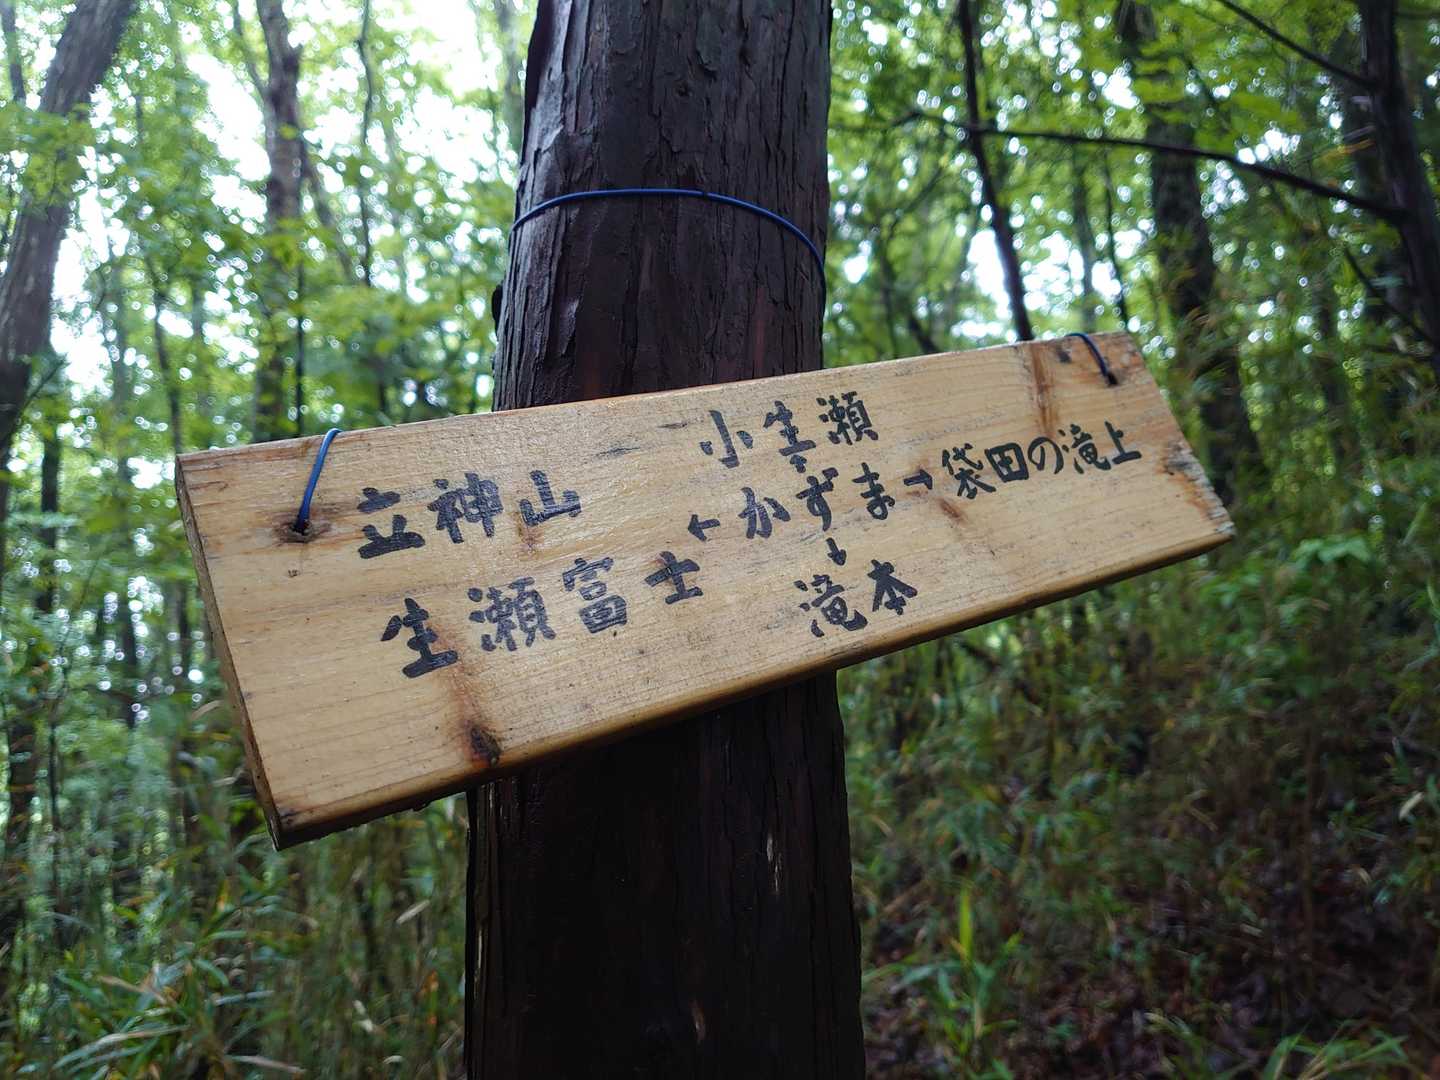 小生瀬
↑
立神山
生瀬富士 ← かずま → 袋田の滝上
↓
滝本